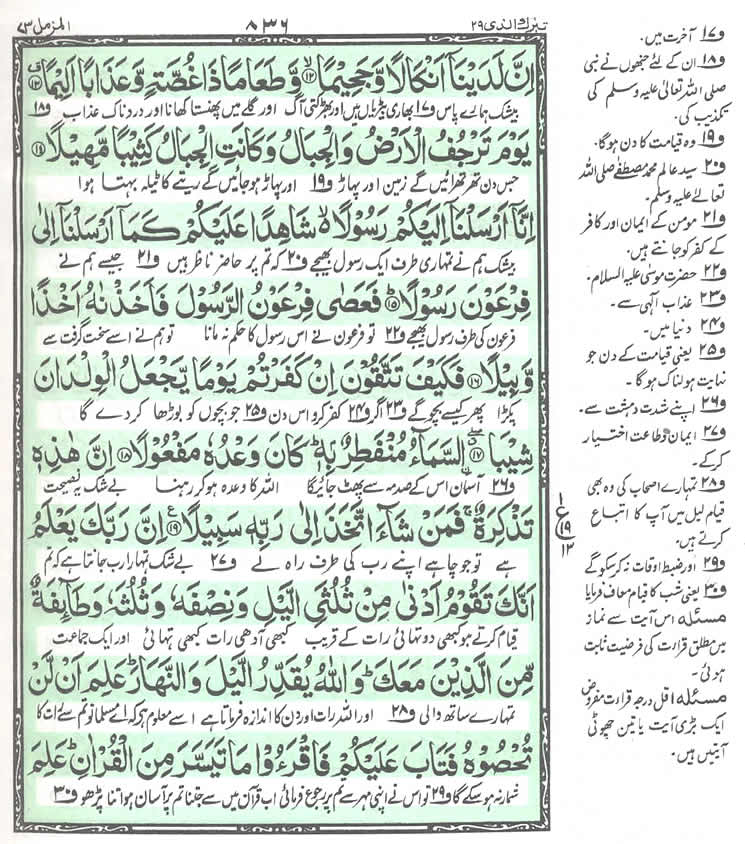 المزمل ۷۳
۸۳۶
تبٰرک الذی ۲۹
اِنَّ لَدَیْنَاۤ اَنْكَالًا وَّ جَحِیْمًا ۙ﴿۱۲﴾ وَّ طَعَامًا ذَا غُصَّةٍ وَّ عَذَابًا اَلِیْمًا ﴿۱۳﴾
بیشک ہمارے پاس و۱۷ بھاری بیڑیاں ہیں اور بھڑکتی آگ اور گلے میں پھنستا کھانا اور دردناک عذاب و۱۸
یَوْمَ تَرْجُفُ الْاَرْضُ وَ الْجِبَالُ وَ كَانَتِ الْجِبَالُ كَثِیْبًا مَّهِیْلًا ﴿۱۴﴾
جس دن تھرتھرائیں گے زمین اور پہاڑ و۱۹ اور پہاڑ ہوجائیں گے ریتے کا ٹیلہ بہتا ہوا
اِنَّاۤ اَرْسَلْنَاۤ اِلَیْكُمْ رَسُوْلًا ۙ۬ شَاهِدًا عَلَیْكُمْ كَمَاۤ اَرْسَلْنَاۤ اِلٰی
بیشک ہم نے تمہاری طرف ایک رسول بھیجے و۲۰ کہ تم پر حاضر ناظر ہیں و۲۱ جیسے ہم نے
فِرْعَوْنَ رَسُوْلًا ؕ﴿۱۵﴾ فَعَصٰی فِرْعَوْنُ الرَّسُوْلَ فَاَخَذْنٰهُ اَخْذًا
فرعون کی طرف رسول بھیجے و۲۲ تو فرعون نے اس رسول کا حکم نہ مانا تو ہم نے اسے سخت گرفت سے
وَّبِیْلًا ﴿۱۶﴾ فَكَیْفَ تَتَّقُوْنَ اِنْ كَفَرْتُمْ یَوْمًا یَّجْعَلُ الْوِلْدَانَ
پکڑا پھر کیسے بچو گے و۲۳ اگر و۲۴ کفر کرو اس دن و۲۵ جو بچوں کو بوڑھا کردے گا
شِیْبَاۨ ﴿۱۷﴾ السَّمَآءُ مُنْفَطِرٌۢ بِهٖ ؕ كَانَ وَعْدُهٗ مَفْعُوْلًا ﴿۱۸﴾ اِنَّ هٰذِهٖ
و۲۶ آسمان اس کے صدمہ سے پھٹ جائیگا اللہ کا وعدہ ہوکر رہنا بے شک یہ نصیحت
تَذْكِرَةٌ ۚ فَمَنْ شَآءَ اتَّخَذَ اِلٰی رَبِّهٖ سَبِیْلًا ﴿۱۹﴾ اِنَّ رَبَّكَ یَعْلَمُ
ہے تو جو چاہے اپنے رب کی طرف راہ لے و۲۷ بے شک تمہارا رب جانتا ہے کہ تم
اَنَّكَ تَقُوْمُ اَدْنٰی مِنْ ثُلُثَیِ الَّیْلِ وَ نِصْفَهٗ وَ ثُلُثَهٗ وَ طَآئِفَةٌ
قیام کرتے ہو کبھی دو تہائی رات کے قریب کبھی آدھی رات کبھی تہائی اور ایک جماعت
مِّنَ الَّذِیْنَ مَعَكَ ؕ وَ اللّٰهُ یُقَدِّرُ الَّیْلَ وَ النَّهَارَ ؕ عَلِمَ اَنْ لَّنْ
تمہارے ساتھ والی و۲۸ اور اللہ رات اور دن کا اندازہ فرماتا ہے اسے معلوم ہے کہ اے مسلمانو تم سے رات کا
تُحْصُوْهُ فَتَابَ عَلَیْكُمْ فَاقْرَءُوْا مَا تَیَسَّرَ مِنَ الْقُرْاٰنِ ؕ عَلِمَ
شمار نہ ہوسکے گا و۲۹ تو اس نے اپنی مہر سے تم پر رجوع فرمائی اب قرآن میں سے جتنا تم پر آسان ہو اتنا پڑھو و۳۰
و۱۷ آخرت میں۔
و۱۸ ان کے لئے جنھوں نے نبی
صلی اللہ تعالیٰ علیہ وسلم کی
تکذیب کی۔
و۱۹ وہ قیامت کا دن ہوگا۔
و۲۰ سید عالم محمد مصطفےٰ صلی اللہ
تعالےٰ علیہ وسلم۔
و۲۱ مومن کے ایمان اور کافر
کے کفر کو جانتے ہیں۔
و۲۲ حضرت موسیٰ علیہ السلام۔
و۲۳ عذاب الٰہی سے۔
و۲۴ دنیا میں۔
و۲۵ یعنی قیامت کے دن جو
نہایت ہولناک ہوگا۔
و۲۶ اپنے شدت دہشت سے۔
و۲۷ ایمان و طاعت اختیار
کرکے۔
و۲۸ تمہارے اصحاب کی وہ بھی
قیام لیل میں آپ کا اتباع
کرتے ہیں۔
و۲۹ اور ضبط اوقات نہ کرسکو گے
و۳۰ یعنی شب کا قیام معاف فرمایا
مسئلہ اس آیت سے نماز
میں مطلق قراءت کی فرضیت ثابت
ہوئی۔
مسئلہ اقل درجہ قراءت مفروض
ایک بڑی آیت یا تین چھوٹی
آیتیں ہیں۔
ع
۱
۱۹
۱۳